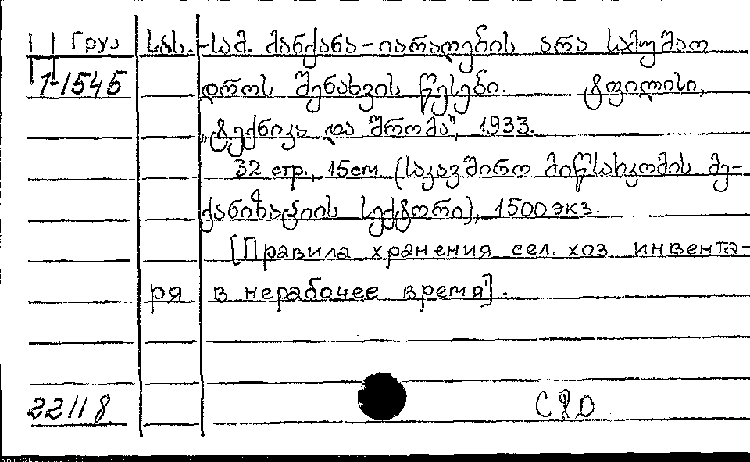 Груз სას.-სამ. მანქანა-იარაღების არა სამუშაო
1-1545 დროს შენახვის წესები. ტფილისი,
„ტექნიკა და შრომა", 1933.
32 стр., 15см (საკავშირო მიწსახკომის მე-
ქანიზაციის სექტორი), 1500 экз.
[Правила хранения сел. хоз. инвента-
ря в нерабочее время].
22118